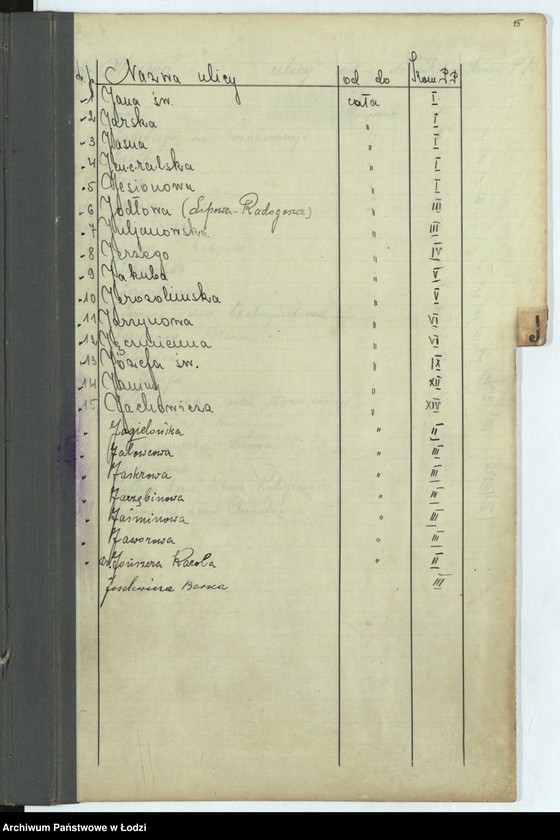 15
L.p. Nazwa ulicy od do Kom. P.P.
1 Jana św. cała I
2 Jarska " I
3 Jasna " I
4 " I
5 Jesionowa " I
6 Jodłowa (Lipowa-Radogoszcz) " III
7 Juljanowska " III
8 Jerzego " IV
9 Jakuba " V
10 Jerozolimska " V
11 Jarzynowa " VI
12 Jęczmienna " VI
13 Józefa św. " IX
14 Janiny " XII
15 Jachowicza " XIV
Jagielońska " II
Jałowcowa " III
Jaskrowa " III
Jarzębinowa "
Jaśminowa " III
Jaworowa " III
Jonszera Karola " II
Joselewicza Berka III
J
Archiwum Państwowe w Łodzi